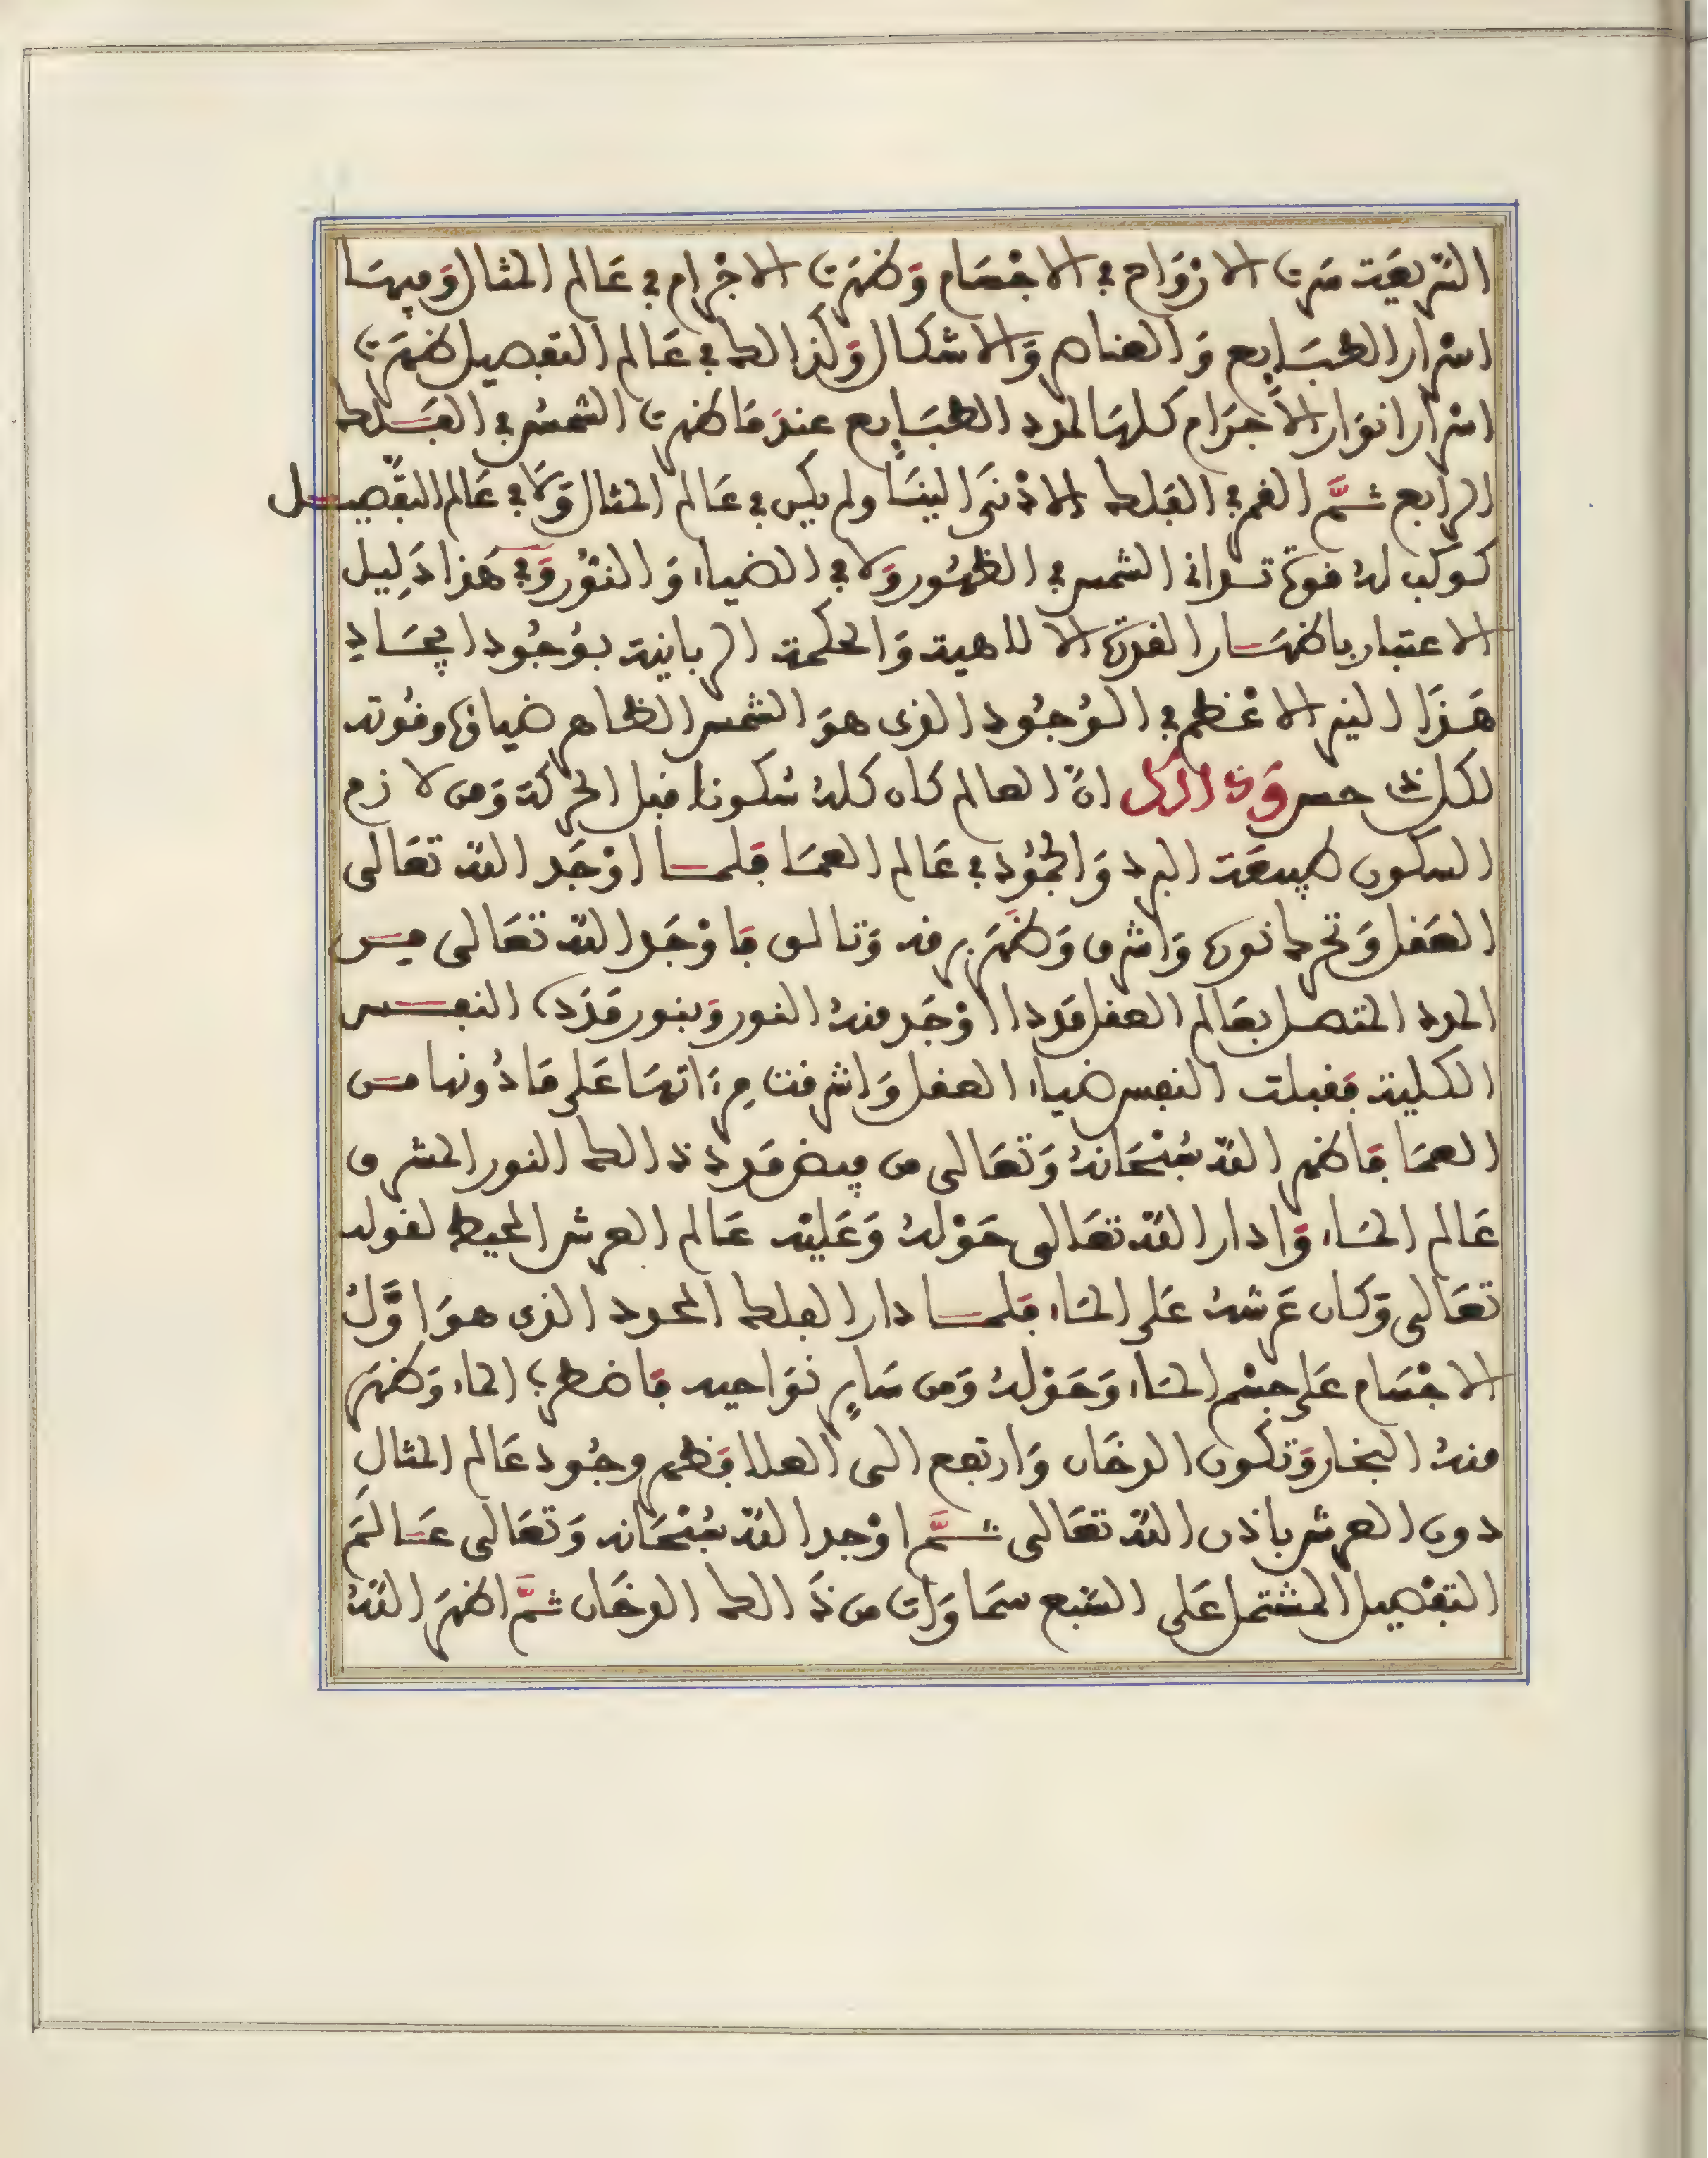 الشريعة سرت الارواح في الاجسام وظهرت الاجرام في عالم المثال وفيها
اسرار الطبايع والعناصر والاشكال وكذالك في عالم التفصيل ظهرت
اسرار انوار الاجرام كلها لمدد الطبايع عند ما ظهرت الشمس في الفلك
الرابع ثم القمر في الفلك الادنى الينا ولم يكن في عالم المثال ولا في عالم التفصيل
كوكب له قوة تدانى الشمس في الظهور ولا في الضياء والنور وفي هذا دليل
الاعتبار باظهار القدرة الالاهية والحكمة الربانية بوجود ايجاد
هذا النير الاعظم في الوجود الذى هو الشمس الظاهر ضياؤها وقوته
لكل ذلك ان العالم كان كله سكونا قبل الحركة ومن لازم
السكون طبيعة البرد والجمود في عالم العما فلما اوجد الله تعالى
العقل وتحرك نوره واشرق وظهر برقه وتالق فاوجد الله تعالى من
المدد المتصل بعالم العقل مددا اوجد منه النور وبنور مدده النفس
الكلية فقبلت النفس ضياء العقل واشرقت مرءاتها على ما دونها من
العما فاظهر الله سبحانه وتعالى من فيض مدد ذالك النور المشرق
عالم الماء وادار الله تعالى حوله وعليه عالم العرش المحيط لقوله
تعالى وكان عرشه على الماء فلما دار الفلك المحدد الذى هو اول
الاجسام على جسم الماء وحوله ومن ساير نواحيه فاضطرب الماء وظهر
منه البخار وتكون الدخان وارتفع الى العلا فظهر وجود عالم المثال
دون العرش باذن الله تعالى ثم اوجد الله سبحانه وتعالى عالم
التفصيل المشتمل على السبع سماوات من ذالك الدخان ثم اظهر الله